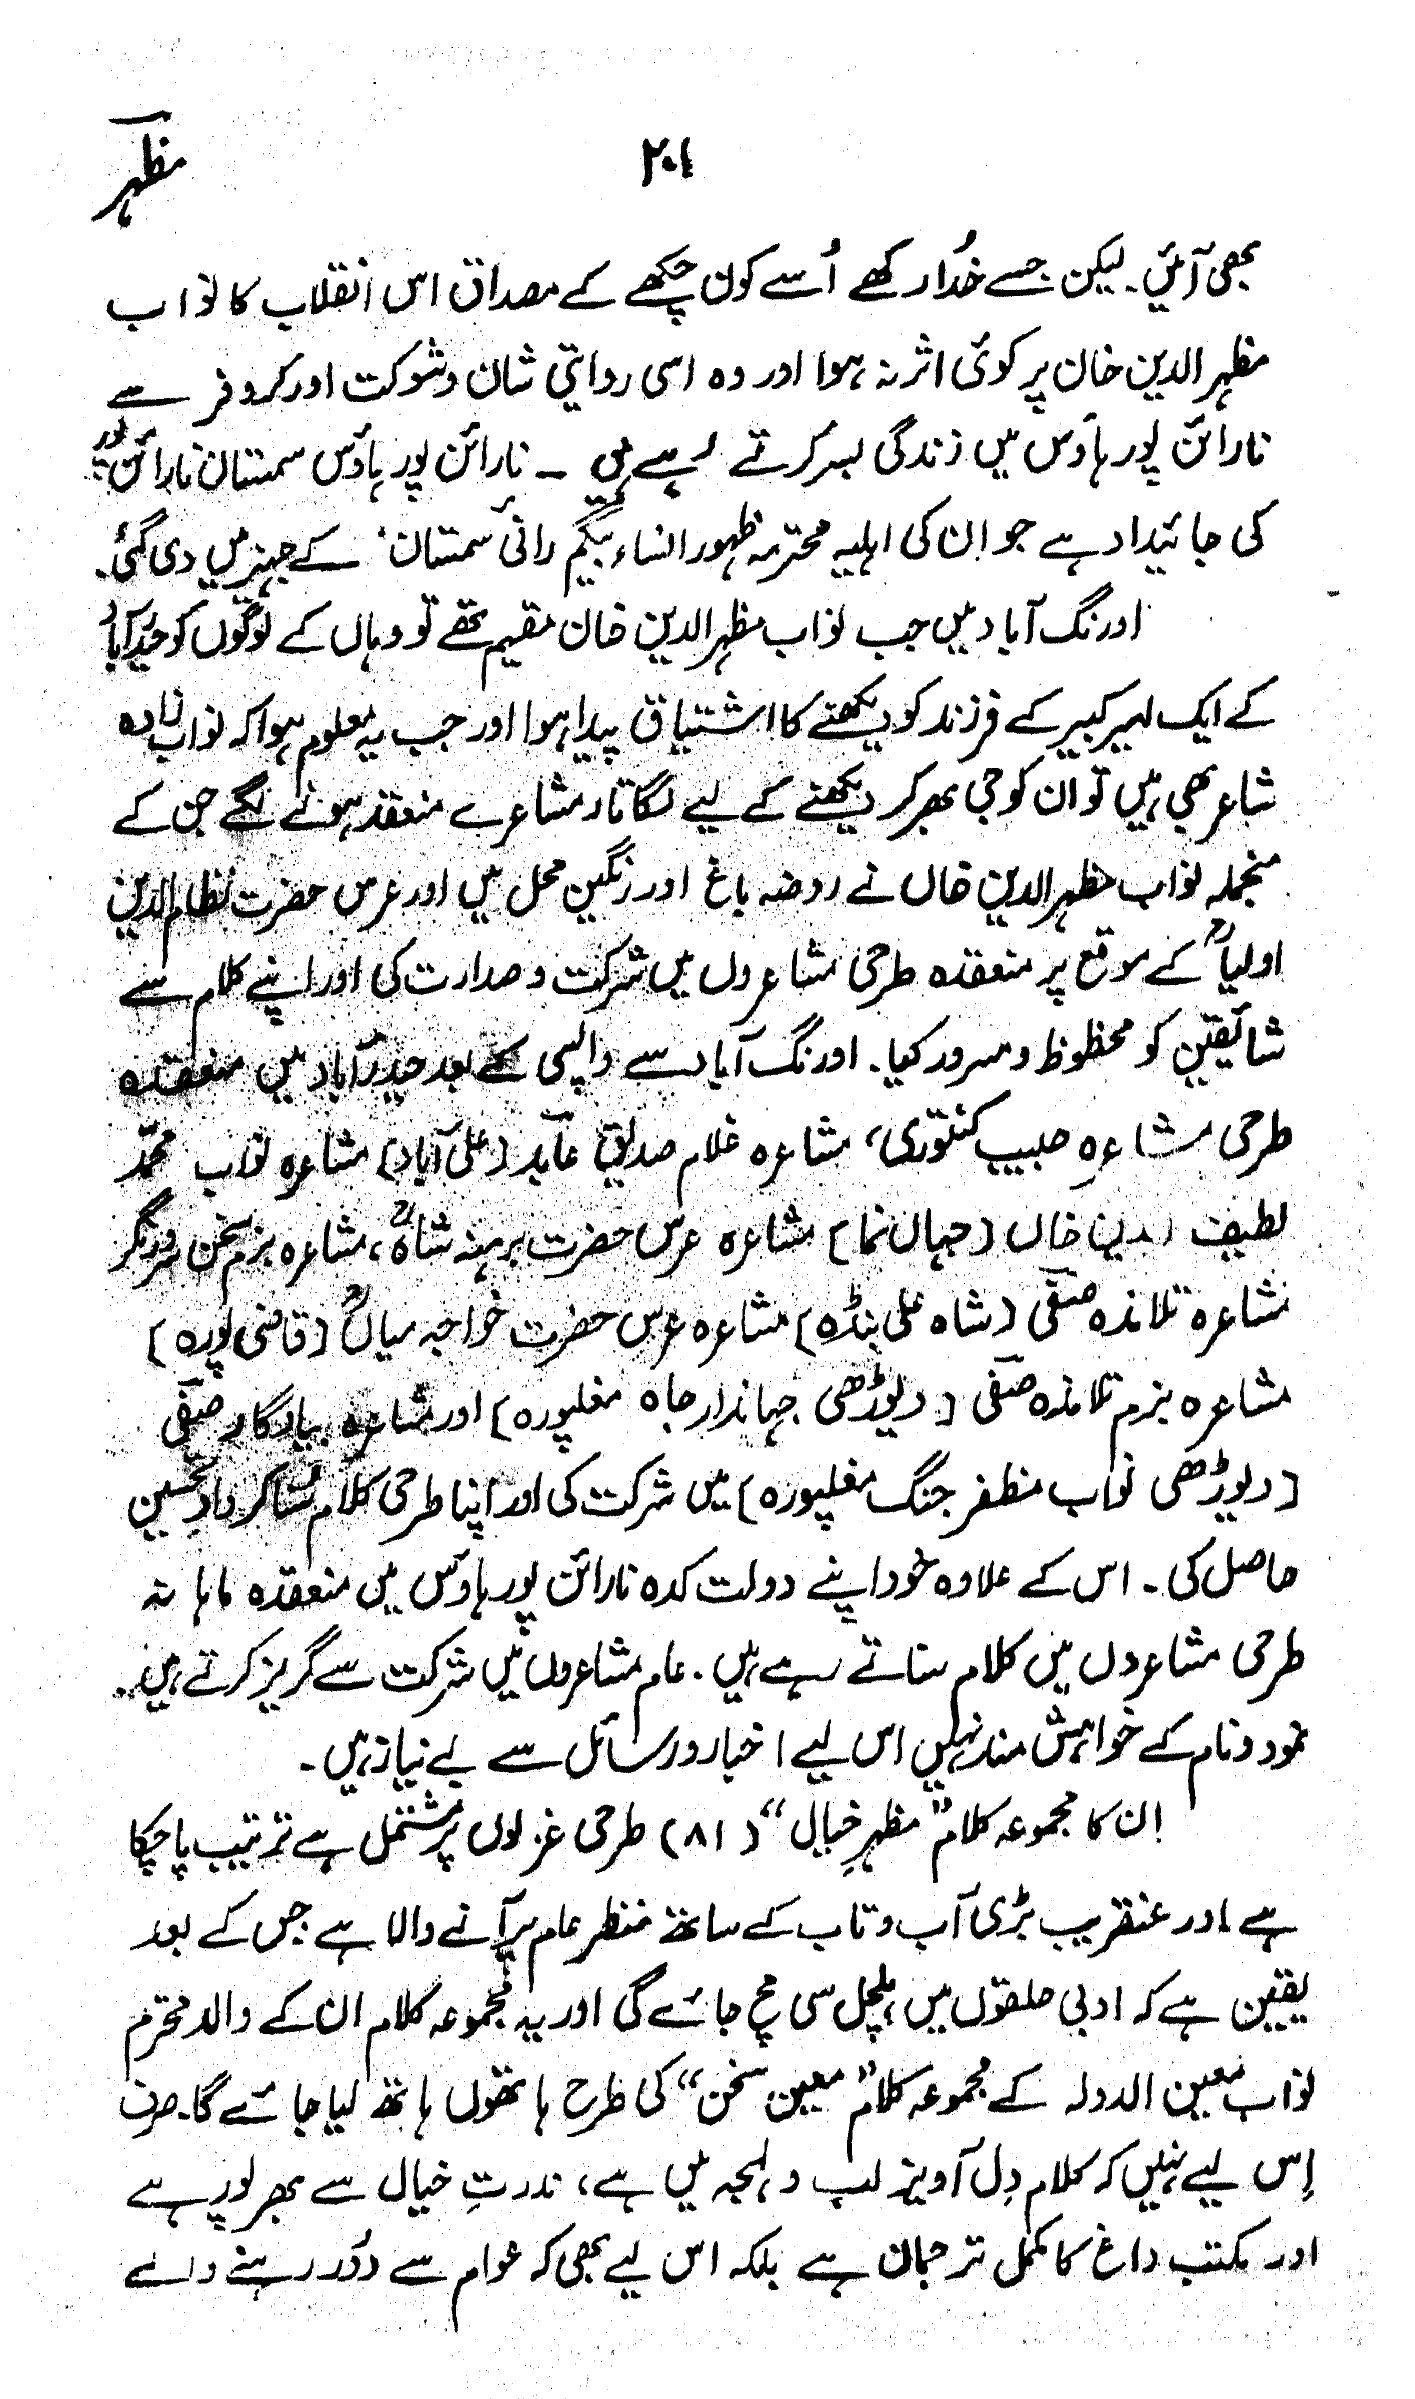 مظہر
۲۰۱
بھی آئیں۔ لیکن جسے خُدا رکھے اُسے کون چکھے کے مصداق اس انقلاب کا نواب
مظہر الدین خان پر کوئی اثر نہ ہوا اور وہ اسی روایتی شان و شوکت اور کروفر سے
نارائن پور ہاؤس میں زندگی بسر کرتے رہے ہیں ۔ نارائن پور ہاؤس سمستان نارائن پور
کی جائیداد ہے جو ان کی اہلیہ محترمہ ظہور النساء بیگم رانی سمستان کے جہیز میں دی گئی۔
اورنگ آباد میں جب نواب مظہر الدین خان مقیم تھے تو وہاں کے لوگوں کو حیدرآباد
کے ایک امیر کبیر کے فرزند کو دیکھنے کا اشتیاق پیدا ہوا اور جب یہ معلوم ہوا کہ نواب زادہ
شاعر بھی ہیں تو ان کو جی بھر کر دیکھنے کے لیے لگاتار مشاعرے منعقد ہونے لگے جن کے
منجملہ نواب مظہر الدین خاں نے روضہ باغ اور رنگین محل میں اور عرس حضرت نظام الدین
اولیاؒ کے موقع پر منعقدہ طرحی مشاعروں میں شرکت و صدارت کی اور اپنے کلام سے
شائقین کو محظوظ و مسرور کیا۔ اورنگ آباد سے واپسی کے بعد حیدرآباد میں منعقدہ
طرحی مشاعرہ حبیب کنتوری، مشاعرہ غلام صدیق عابد (علی آباد) مشاعرہ نواب محمد
لطیف الدین خاں (جہاں نما) مشاعرہ عرس حضرت برہنہ شاہؒ، مشاعرہ بزم سخن سرورنگر
مشاعرہ تلامذہ صفی (شاہ علی بنڈہ) مشاعرہ عرس حضرت خواجہ میاںؒ (قاضی پورہ)
مشاعرہ بزم تلامذہ صفی (دیوڑھی جہاندار جاہ مغلپورہ) اور مشاعرہ بیادگار صفی
(دیوڑھی نواب مظفر جنگ مغلپورہ) میں شرکت کی اور اپنا طرحی کلام سُنا کر دادِ تحسین
حاصل کی۔ اس کے علاوہ خود اپنے دولت کدہ نارائن پور ہاؤس میں منعقدہ ماہانہ
طرحی مشاعروں میں کلام سناتے رہے ہیں۔ عام مشاعروں میں شرکت سے گریز کرتے ہیں۔
نمود و نام کے خواہش مند نہیں اس لیے اخبار و رسائل سے بے نیاز ہیں۔
اِن کا مجموعہ کلام ”مظہرِ خیال“ (۸۱) طرحی غزلوں پر مشتمل ہے ترتیب پا چکا
ہے اور عنقریب بڑی آب و تاب کے ساتھ منظر عام پر آنے والا ہے جس کے بعد
یقین ہے کہ ادبی حلقوں میں ہلچل سی مچ جائے گی اور یہ مجموعہ کلام ان کے والد محترم
نواب معین الدولہ کے مجموعہ کلام ”معین سخن“ کی طرح ہاتھوں ہاتھ لیا جائے گا۔ صرف
اِس لیے نہیں کہ کلام دِل آویز لب و لہجہ میں ہے، ندرتِ خیال سے بھرپور ہے
اور مکتب داغ کا مکمل ترجمان ہے بلکہ اس لیے بھی کہ عوام سے دُور رہنے والے